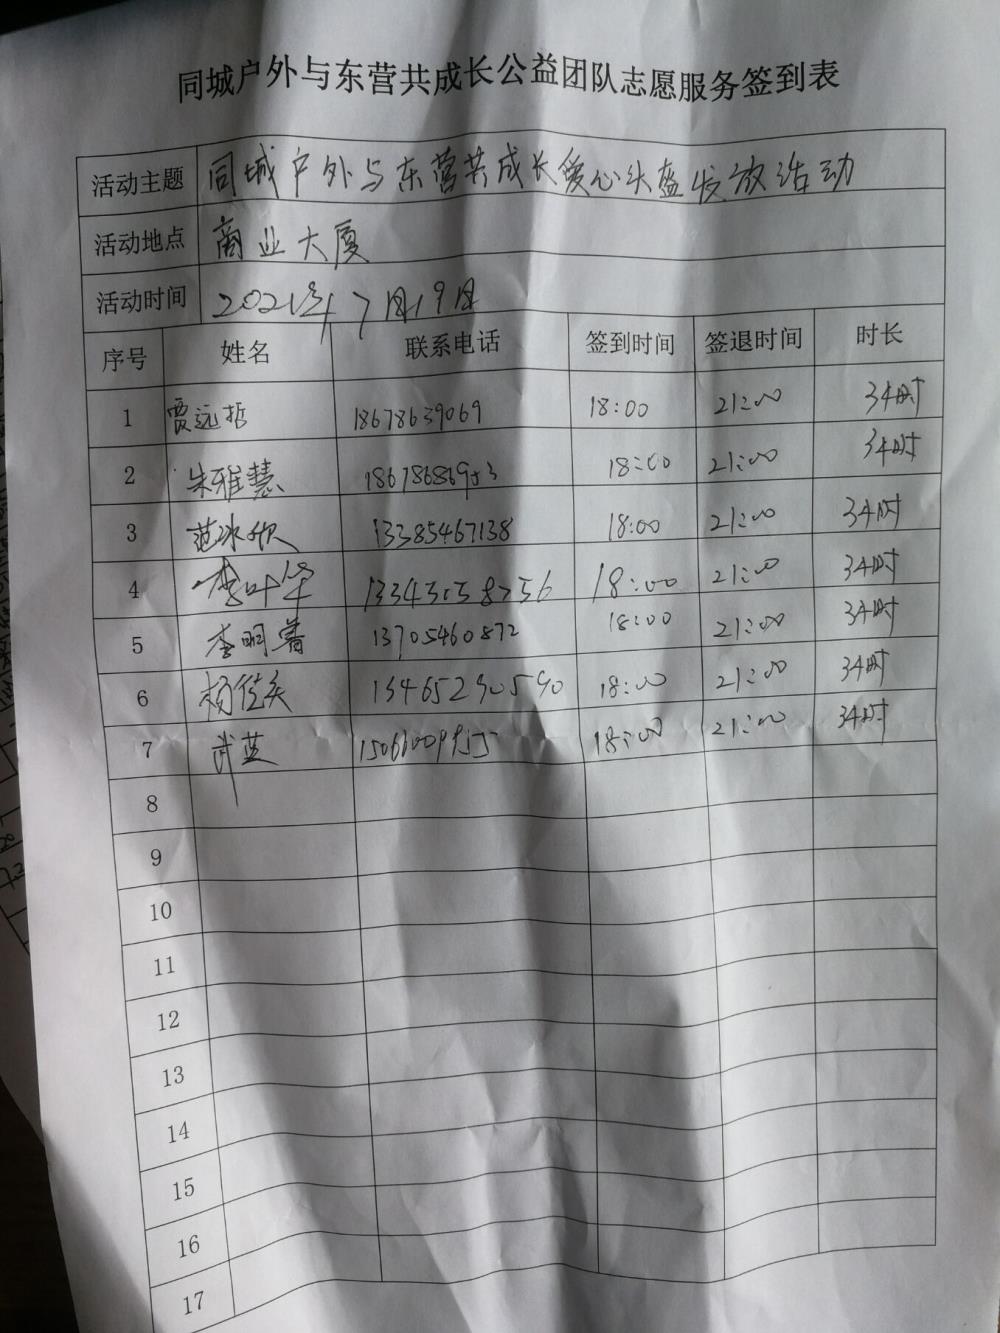 同城户外与东营共成长公益团队志愿服务签到表
活动主题 同城户外与东营共成长爱心头盔发放活动
活动地点 商业大厦
活动时间 2021年7月19日
序号 姓名 联系电话 签到时间 签退时间 时长
1 贾远哲 18678639069 18:00 21:00 3小时
2 朱雅慧 18:00 21:00 3小时
3 范冰欣 13385467138 18:00 21:00 3小时
4 李叶华 18:00 21:00 3小时
5 李明睿 13705460872 18:00 21:00 3小时
6 18:00 21:00 3小时
7 武蓝 18:00 21:00 3小时
8
9
10
11
12
13
14
15
16
17